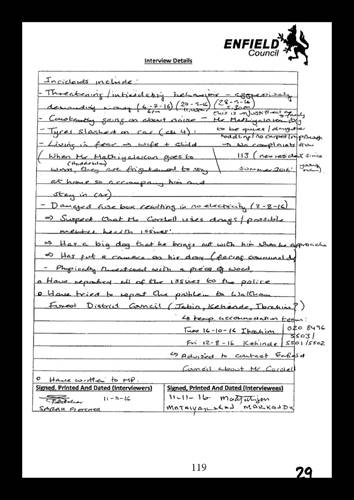 ENFIELD
Council
Interview Details
Incidents include:
- Threatening / intimidating behaviour - aggressively
demanding money (6-7-16)
- Constantly going on about noise - Mr Mathiyalagan
to be quiet /
- Tyres slashed on car (all 4)
- Living in fear → wife + child → No complaints from
(When Mr Mathiyalagan goes to 113 (new resident since
work they are frightened to stay summer 2016)
at home so accompany him and
stay in car)
- Damaged fuse box resulting in no electricity (8-8-16)
→ Suspect that Mr Cordell uses drugs / possible
mental health issues
→ Has a big dog that he brings out with him when he approaches
→ Has put a camera on his door (facing communal)
- Physically threatened with a piece of wood
o Have reported all of the issues to the police
o Have tried to report the problem to Waltham
Forest District Council (Tobin, Kehinde, Ibrahim?)
↳ temp accommodation team:
Tues 16-10-16 Ibrahim 020 8496
Fri 12-8-16 Kehinde 5501/5502
↳ Advised to contact Enfield
Council about Mr Cordell
o Have written to MP.
Signed, Printed And Dated (Interviewers) Signed, Printed And Dated (Interviewees)
11-11-16
SARAH FLETCHER
119
29